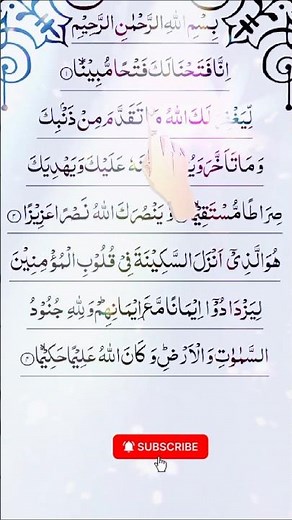 بِسْمِ اللهِ الرَّحْمٰنِ الرَّحِيْمِ
اِنَّا فَتَحْنَا لَكَ فَتْحًا مُّبِيْنًا ۙ﴿۱﴾
لِّيَغْفِرَ لَكَ اللهُ مَا تَقَدَّمَ مِنْ ذَنْۢبِكَ
وَمَا تَاَخَّرَ عَلَيْكَ وَيَهْدِيَكَ
صِرَاطًا مُّسْتَقِيْمًا وَّيَنْصُرَكَ اللهُ نَصْرًا عَزِيْزًا ﴿۳﴾
هُوَ الَّذِيْۤ اَنْزَلَ السَّكِيْنَةَ فِيْ قُلُوْبِ الْمُؤْمِنِيْنَ
لِيَزْدَادُوْۤا اِيْمَانًا مَّعَ اِيْمَانِهِمْ ؕ وَلِلّٰهِ جُنُوْدُ
السَّمٰوٰتِ وَالْاَرْضِ ؕ وَكَانَ اللهُ عَلِيْمًا حَكِيْمًا ۙ﴿۴﴾
SUBSCRIBE